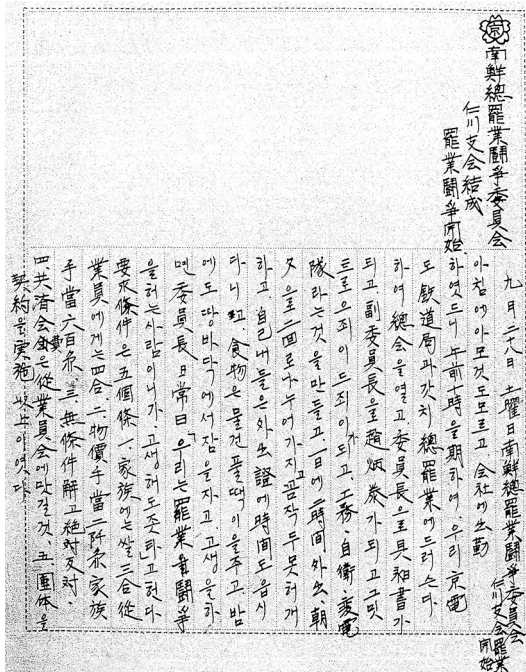 南鮮總罷業鬪爭委員会
仁川支会結成
罷業鬪爭開始
九月二八日 土曜日 南鮮總罷業鬪爭委員会
仁川支会罷業
開始
아침에 아모것도모르고 会社에 出勤
하엿드니 午前十時을期하여 우리 京電
도 鉄道局과갓치 總罷業에 드러슨다.
하여 總会을 열고, 委員長으로 具 書가
되고 副委員長으로 趙炳 가 되고 그밋
트로 으죄이 드죄이 되고, 工務, 自衛, 変電
隊라는것을 만들고, 一日에 二時間 外出 朝
夕으로 二回로 나누어가지고 꼼작두못허개
하고 自己내들은 外出證에 時間도 읍시
다니고 食物은 물건 풀떡이을주고 밤
에도 땅바닥에서 잠을자고 고생을하
면 委員長 日常曰 우리는 罷業을 鬪爭
을허는사람이니가 고생해도 존타고헌다.
要求條件은 五個條 一, 家族에는 쌀三合 從
業員에게는 四合, 二, 物價手當 二阡 家族
手當 六百 , 三, 無條件解고 絶対反対,
四, 共済会 은 從業員会에 맛길것, 五, 團体
契約을 実施 이엿다.